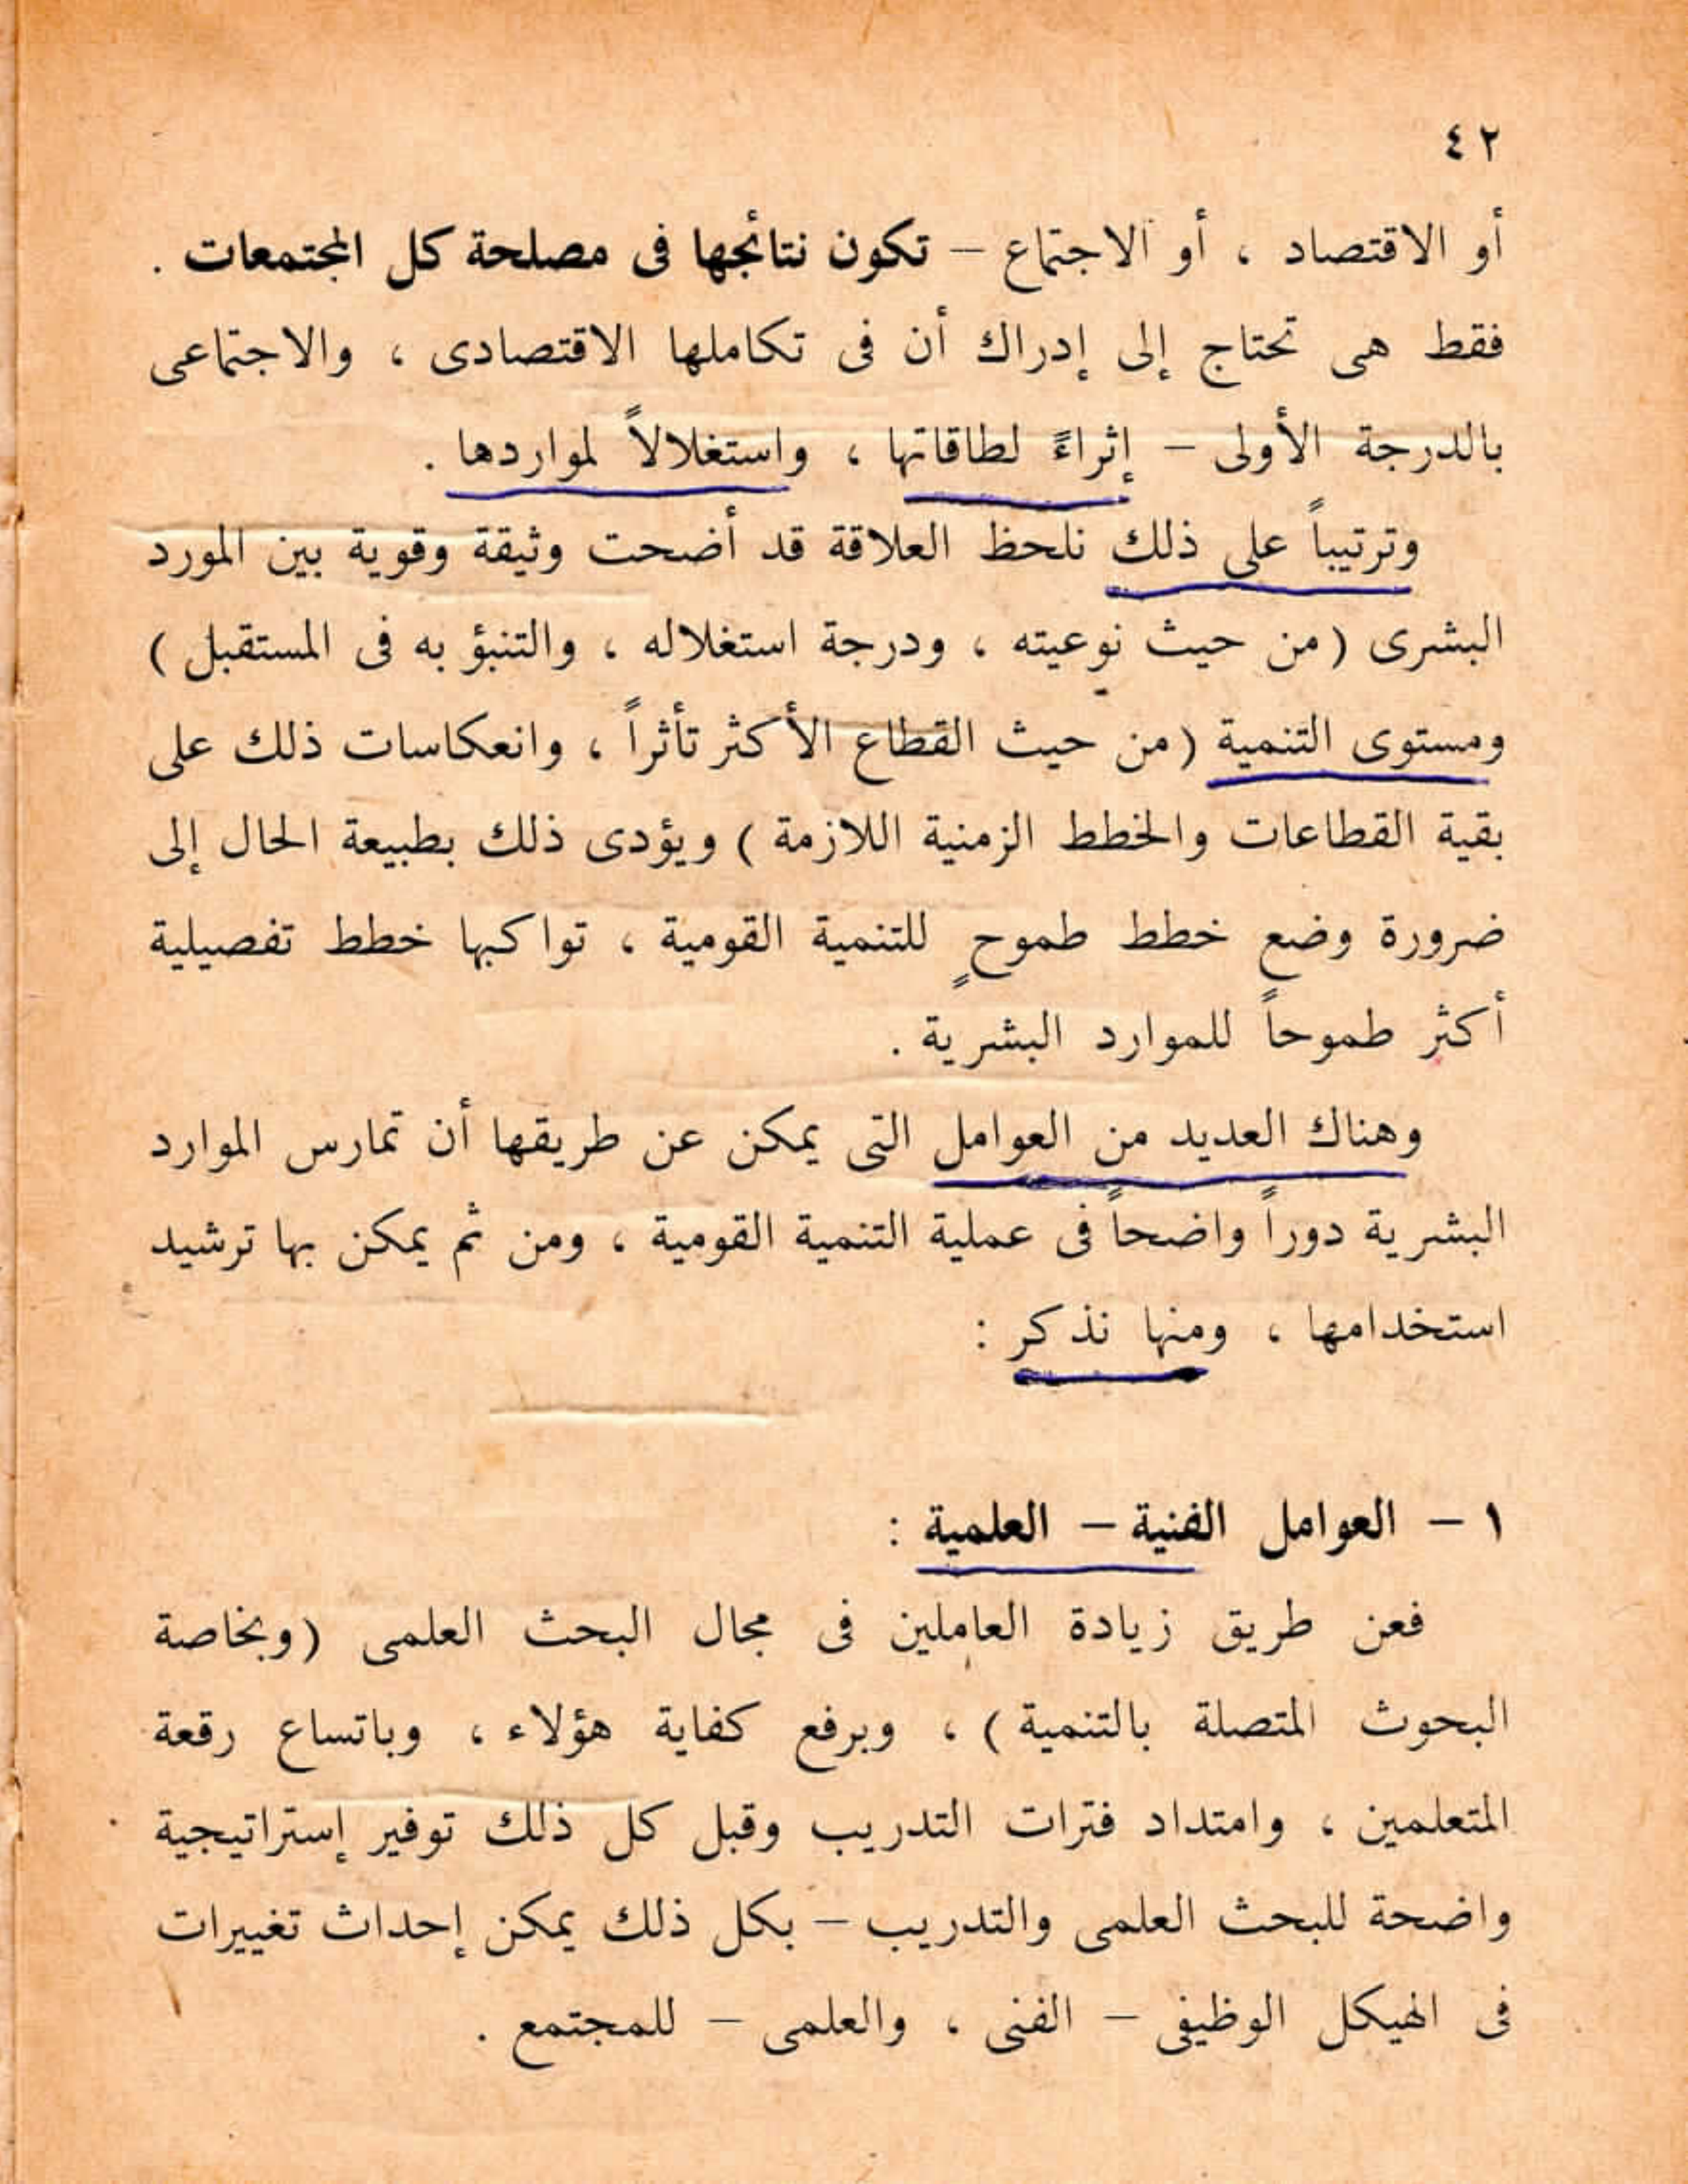 ٤٢
أو الاقتصاد ، أو الاجتماع – تكون نتائجها فى مصلحة كل المجتمعات .
فقط هى تحتاج إلى إدراك أن فى تكاملها الاقتصادى ، والاجتماعى
بالدرجة الأولى – إثراءً لطاقاتها ، واستغلالاً لمواردها .
وترتيباً على ذلك نلحظ العلاقة قد أضحت وثيقة وقوية بين المورد
البشرى ( من حيث نوعيته ، ودرجة استغلاله ، والتنبؤ به فى المستقبل )
ومستوى التنمية ( من حيث القطاع الأكثر تأثراً ، وانعكاسات ذلك على
بقية القطاعات والخطط الزمنية اللازمة ) ويؤدى ذلك بطبيعة الحال إلى
ضرورة وضع خطط طموحٍ للتنمية القومية ، تواكبها خطط تفصيلية
أكثر طموحاً للموارد البشرية .
وهناك العديد من العوامل التى يمكن عن طريقها أن تمارس الموارد
البشرية دوراً واضحاً فى عملية التنمية القومية ، ومن ثم يمكن بها ترشيد
استخدامها ، ومنها نذكر :
١ – العوامل الفنية – العلمية :
فعن طريق زيادة العاملين فى مجال البحث العلمى ( وبخاصة
البحوث المتصلة بالتنمية ) ، وبرفع كفاية هؤلاء ، وباتساع رقعة
المتعلمين ، وامتداد فترات التدريب وقبل كل ذلك توفير إستراتيجية
واضحة للبحث العلمى والتدريب – بكل ذلك يمكن إحداث تغييرات
فى الهيكل الوظيفى – الفنى ، والعلمى – للمجتمع .